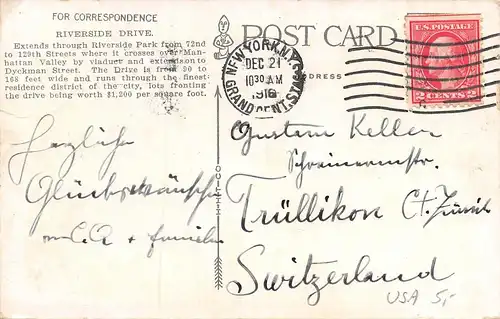 FOR CORRESPONDENCE
RIVERSIDE DRIVE.
Extends through Riverside Park from 72nd
to 129th Streets where it crosses over Man-
hattan Valley by viaduct and extends on to
Dyckman Street. The Drive is from 90 to
168 feet wide and runs through the finest
residence district of the city, lots fronting
the drive being worth $1,200 per square foot.
Herzliche
Glückwünsche
+ Familie
POST CARD
ADDRESS
NEW YORK, N.Y.
DEC 21
10 30 AM
1916
GRAND CENT. STA.
U.S. POSTAGE
2 CENTS 2
Gustav Keller
Schreinermstr.
Trüllikon Ct. Zürich
Switzerland
USA 5,-